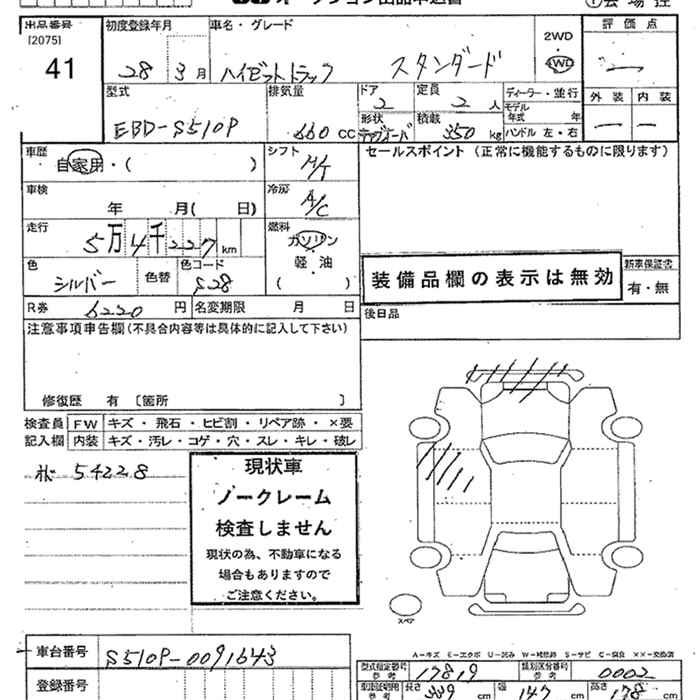 オークション出品申込書
①会場控
出品番号 初度登録年月 車名・グレード 2WD 評価点
[2075]
41 28年3月 ハイゼットトラック スタンダード 4WD
型式 排気量 ドア 定員 ディーラー・並行 外装 内装
2 2人 モデル年式 年
EBD-S510P 660cc 形状 積載 350kg ハンドル 左・右
車歴 シフト セールスポイント (正常に機能するものに限ります)
自家用・( ) M/T
車検 冷房
年 月( 日) A/C
走行 燃料
5万4千227km ガソリン
色 色替 色コード 軽・油 装備品欄の表示は無効 新車保証書
シルバー S28 ( ) 有・無
R券 6220円 名変期限 月 日 後日品
注意事項申告欄(不具合内容等は具体的に記入して下さい)
修復歴 有 [箇所 ]
検査員 FW キズ・飛石・ヒビ割・リペア跡・×要
記入欄 内装 キズ・汚レ・コゲ・穴・スレ・キレ・破レ
54228
現状車
ノークレーム
検査しません
現状の為、不動車になる
場合もありますので
ご注意ください。
スペア
車台番号 S510P-0091643
A-キズ E-エクボ U-凹み W-補修跡 S-サビ C-腐食 ××-交換済
型式指定番号 参考 17819 類別区分番号 参考 0002
登録番号
長さ 339cm 幅 147cm 高さ 178cm